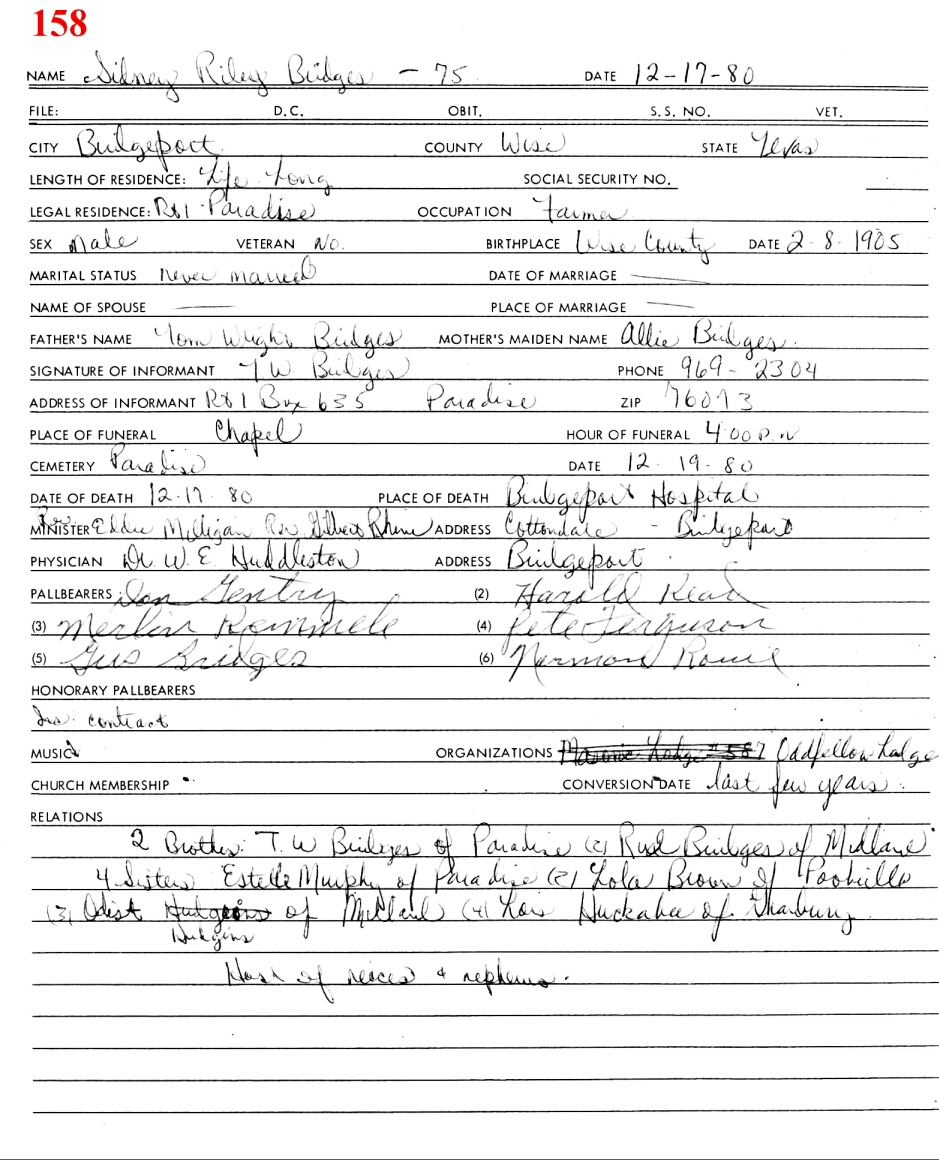 158
NAME Sidney Riley Bridges - 75 DATE 12-17-80
FILE: D.C. OBIT. S.S. NO. VET.
CITY Bridgeport COUNTY Wise STATE Texas
LENGTH OF RESIDENCE: Life Long SOCIAL SECURITY NO.
LEGAL RESIDENCE: Rt 1 Paradise OCCUPATION Farmer
SEX Male VETERAN No. BIRTHPLACE Wise County DATE 2-8-1905
MARITAL STATUS Never married DATE OF MARRIAGE
NAME OF SPOUSE PLACE OF MARRIAGE
FATHER'S NAME Tom Wright Bridges MOTHER'S MAIDEN NAME Allie Bridges
SIGNATURE OF INFORMANT T W Bridges PHONE 969-2304
ADDRESS OF INFORMANT Rt 1 Box 635 Paradise ZIP 76073
PLACE OF FUNERAL Chapel HOUR OF FUNERAL 4:00 P.M
CEMETERY Paradise DATE 12-19-80
DATE OF DEATH 12-17-80 PLACE OF DEATH Bridgeport Hospital
MINISTER Rev Eddie Milligan Rev Gilbert Rhine ADDRESS Cottondale - Bridgeport
PHYSICIAN Dr. W. E. Huddleston ADDRESS Bridgeport
PALLBEARERS Don Gentry (2) Harold Read
(3) Merlin Kemmele (4) Pete Ferguson
(5) Gus Bridges (6) Norman Rowe
HONORARY PALLBEARERS
Ins. contract
MUSIC ORGANIZATIONS Masonic Lodge #587 Oddfellow Lodge
CHURCH MEMBERSHIP CONVERSION DATE last few years
RELATIONS
2 Brothers: T. W Bridges of Paradise (2) Rual Bridges of Midland
4 Sisters Estelle Murphy of Paradise (2) Lola Brown of Poolville
(3) Odist of Midland (4) Lois Huckabee of Granbury
Hudgins
Host of neices & nephews.